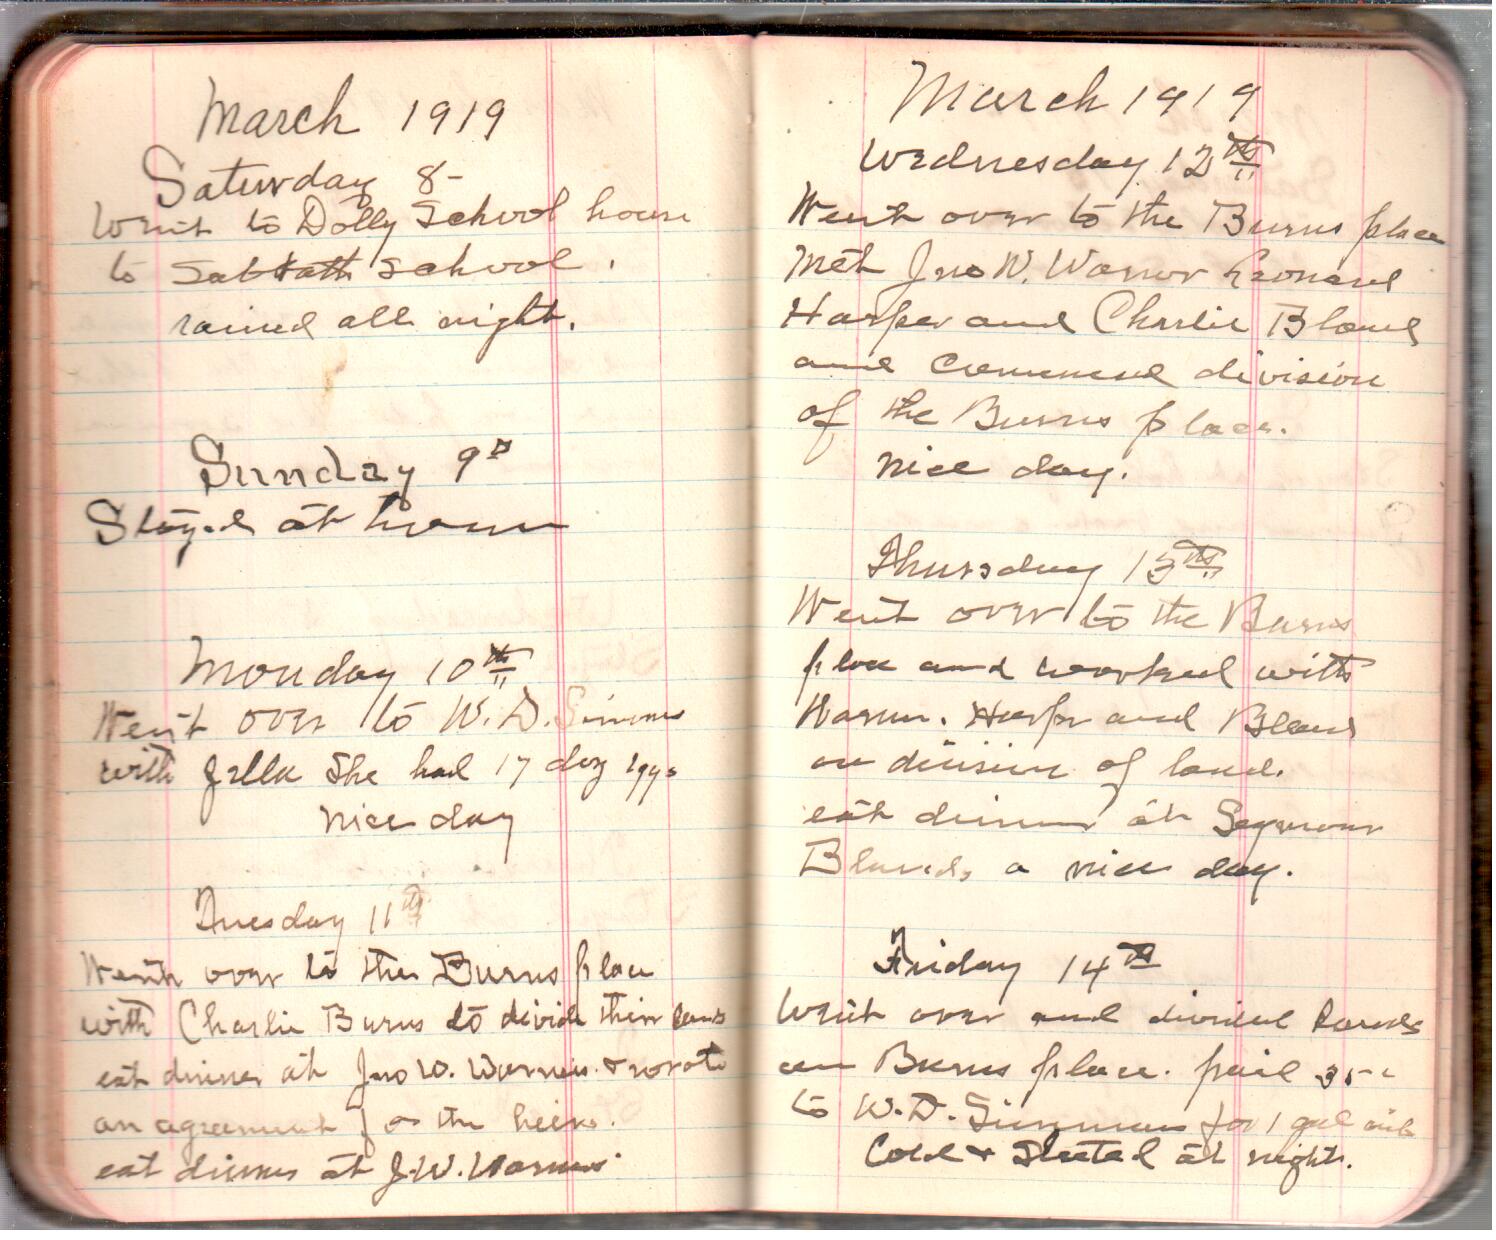 March 1919
Saturday 8-
Went to Dolly School house
to Sabbath School.
rained all night.
Sunday 9th
Stayed at home
Monday 10th
Went over to W. D. Simmons
with Jella She had 17 doz eggs
nice day
Tuesday 11th
Went over to the Burns place
with Charlie Burns to divide their lands
eat dinner at Jno W. Warners & wrote
an agreement for the heirs.
eat dinner at J. W. Warners.
March 1919
Wednesday 12th
Went over to the Burns place
Met Jno W. Warner Leonard
Harper and Charlie Bland
and commenced division
of the Burns place.
nice day.
Thursday 13th
Went over to the Burns
place and worked with
Warner. Harper and Bland
on division of land.
eat dinner at Seymour
Blands, a nice day.
Friday 14th
Went over and divided lands
on Burns place. paid 35c
to W. D. Simmons for 1 gal
Cold & Sleeted at night.